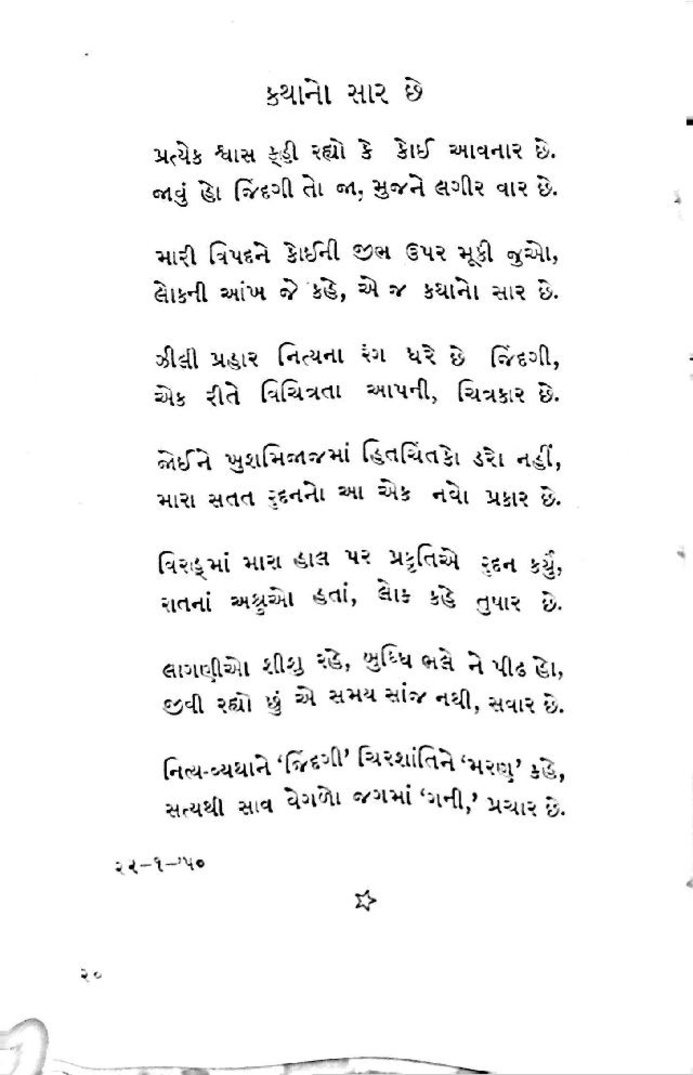 કથાનો સાર છે
પ્રત્યેક શ્વાસ કહી રહ્યો કે કોઈ આવનાર છે.
જાવું હો જિંદગી તો જા, મુજને લગીર વાર છે.
મારી વિપદને કોઈની જીભ ઉપર મૂકી જુઓ,
લોકની આંખ જે કહે, એ જ કથાનો સાર છે.
ઝીલી પ્રહાર નિત્યના રંગ ધરે છે જિંદગી,
એક રીતે વિચિત્રતા આપની, ચિત્રકાર છે.
જોઈને ખુશમિજાજમાં હિતચિંતકો ડરો નહીં,
મારા સતત રુદનનો આ એક નવો પ્રકાર છે.
વિરહમાં મારા હાલ પર પ્રકૃતિએ રુદન કર્યું,
રાતનાં અશ્રુઓ હતાં, લોક કહે તુષાર છે.
લાગણીઓ શીશુ રહે, બુધ્ધિ ભલે ને પીઢ હો,
જીવી રહ્યો છું એ સમય સાંજ નથી, સવાર છે.
નિત્ય-વ્યથાને ‘જિંદગી’ ચિરશાંતિને ‘મરણ’ કહે,
સત્યથી સાવ વેગળો જગમાં ‘ગની,’ પ્રચાર છે.
૨૨-૧-’૫૦
૨૦